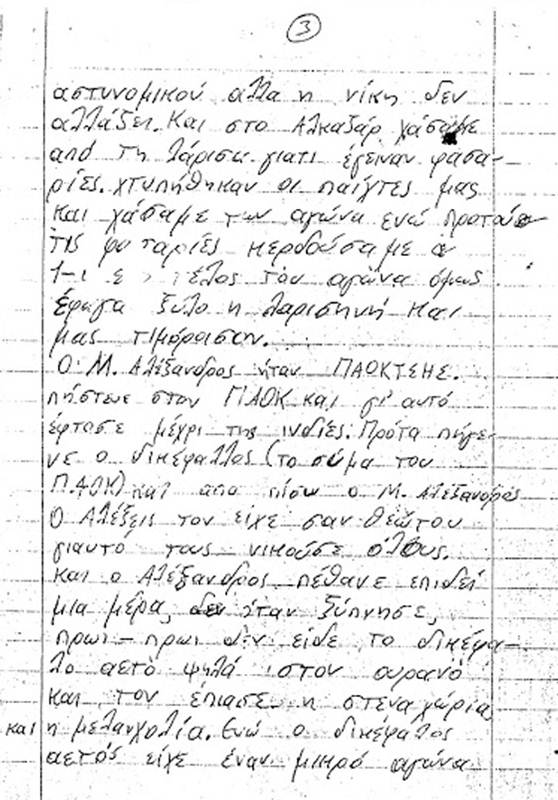 3
αστυνομικού αλλα η νίκη δεν
αλλάζει. Και στο Αλκαζάρ χάσαμε
από τη λάρισα γιατι έγειναν φασα-
ρίες. χτυπήθηκαν οι παίχτες μας
και χάσαμε των αγώνα ενώ προτού
τις φυταρίες κερδούσαμε
1-1 τέλος τον αγώνα όμως
έφαγα ξύλο η λαρισηνή και
μας τιμόρισαν.
Ο Μ. Αλέξανδρος ήταν ΠΑΟΚΤΣΗΣ.
πήστευε στον ΠΑΟΚ και γι' αυτό
έφτασε μέχρι της ινδίες. Πρότα πήγε-
νε ο δικέφαλλος (το σύμα του
Π.ΑΟΚ) και απο πίσω ο Μ. Αλέξανδρος
Ο Αλέξεις τον είχε σαν θεώ του
γιαυτό τους νικούσε όλους.
Και ο Αλέξανδρος πέθανε επιδεί
μια μέρα, ήταν ξύπνησε,
πρωι-πρωι δεν είδε το δικέφα-
λο αετό ψηλά στον ουρανό
και τον έπιασε η στεναχώρια
και η μελανχολία. Ενώ ο δικέφαλος
αετός είχε έναν μικρό αγώνα